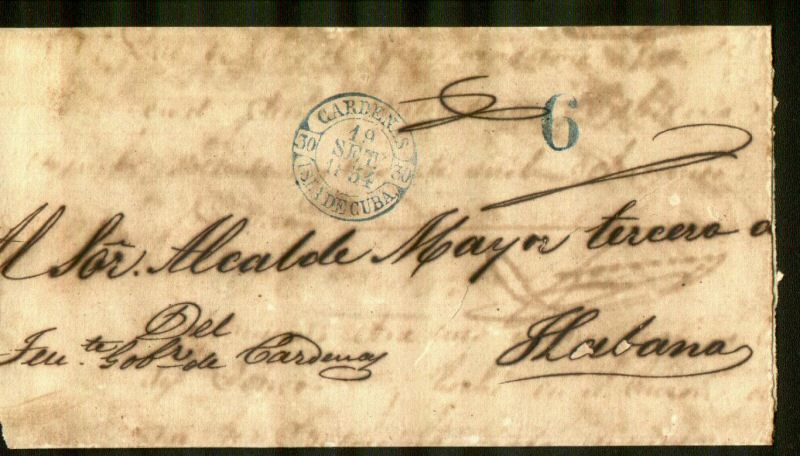 CARDENAS
30 30
19
SET
1854
ISLA DE CUBA
6
Al Sõr. Alcalde Mayor tercero
Del
Ten.te Gob.r de Cardenas
Habana